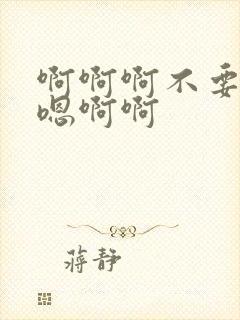 啊啊啊不要
嗯啊啊
蒋静